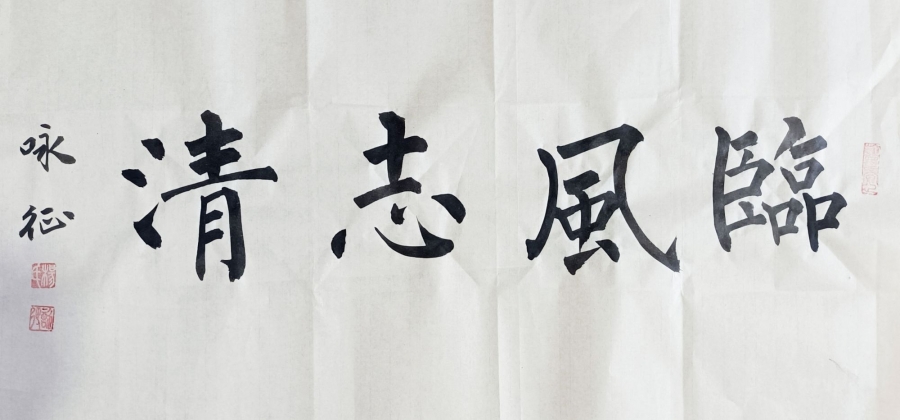 臨風志清
咏征